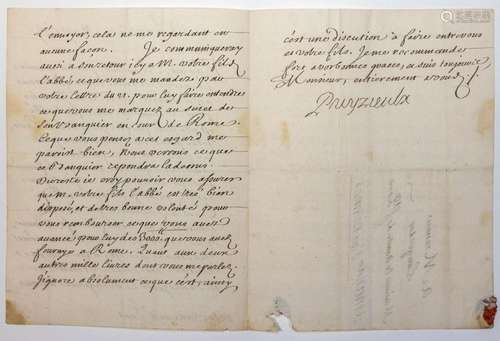 L'envoyer, cela ne me regardant en
aucune façon. Je communiqueray
aussi a son retour icy a M. votre fils
l'abbé ce que vous me mandez par
votre lettre du pour luy faire entendre
ce que vous me marquez au sujet de
son banquier en cour de Rome.
Ce que vous pensez a cet egard me
paroist bien, nous verrons ce que
ce banquier repondra la dessus
je croy pouvoir vous assurer
que M. votre fils l'abbé est tres bien
disposé, et de tres bonne volonté pour
vous rembourser ce que vous avez
avancé pour luy des 3000 que vous avez
fournys a Rome. Quant aux deux
autres mille livres dont vous me parlez,
J'ignore absolument ce que c'est, ainsy
c'est une discution à faire entre vous
et votre fils. Je me recommande
a vos bonnes graces, et suis toujours
Monsieur, entierement a vous
Puyzieulx